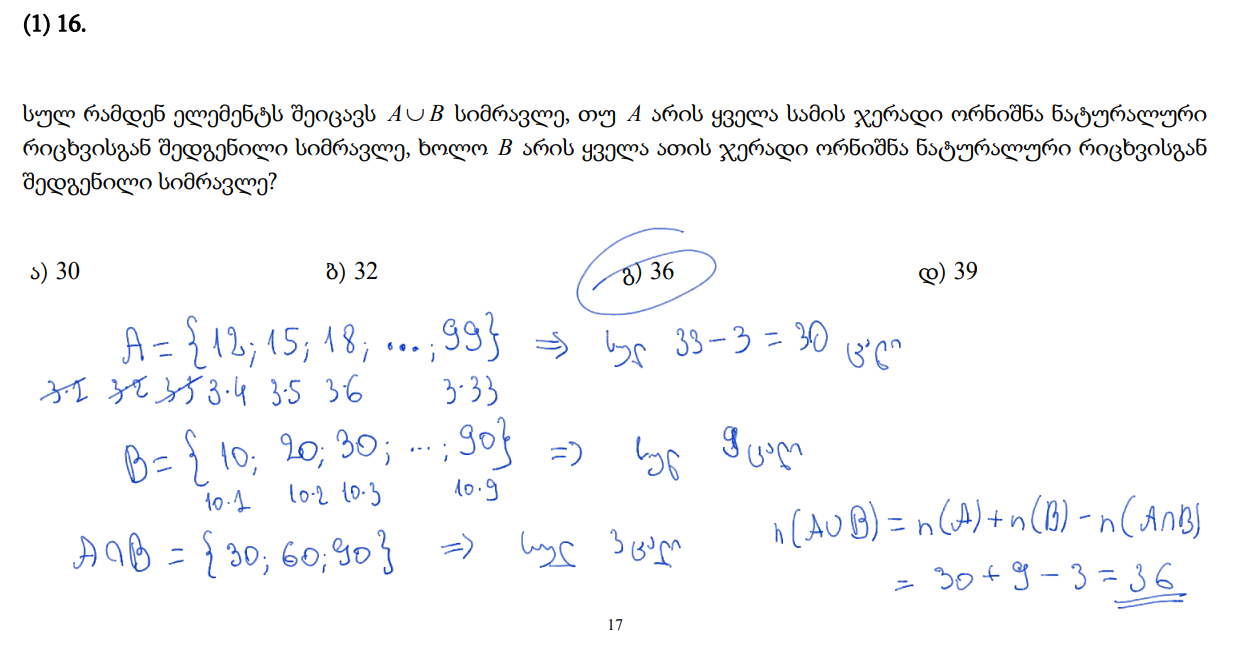 (1) 16.
სულ რამდენ ელემენტს შეიცავს A∪B სიმრავლე, თუ A არის ყველა სამის ჯერადი ორნიშნა ნატურალური
რიცხვისგან შედგენილი სიმრავლე, ხოლო B არის ყველა ათის ჯერადი ორნიშნა ნატურალური რიცხვისგან
შედგენილი სიმრავლე?
ა) 30 ბ) 32 გ) 36 დ) 39
A = {12; 15; 18; ...; 99} ⇒ სულ 33 − 3 = 30 ცალი
3·1 3·2 3·3 3·4 3·5 3·6 3·33
B = { 10; 20; 30; ...; 90} => სულ 9 ცალი
10·1 10·2 10·3 10·9
A∩B = {30; 60; 90} => სულ 3 ცალი
n(A∪B) = n(A)+n(B) − n(A∩B)
= 30 + 9 − 3 = 36
17